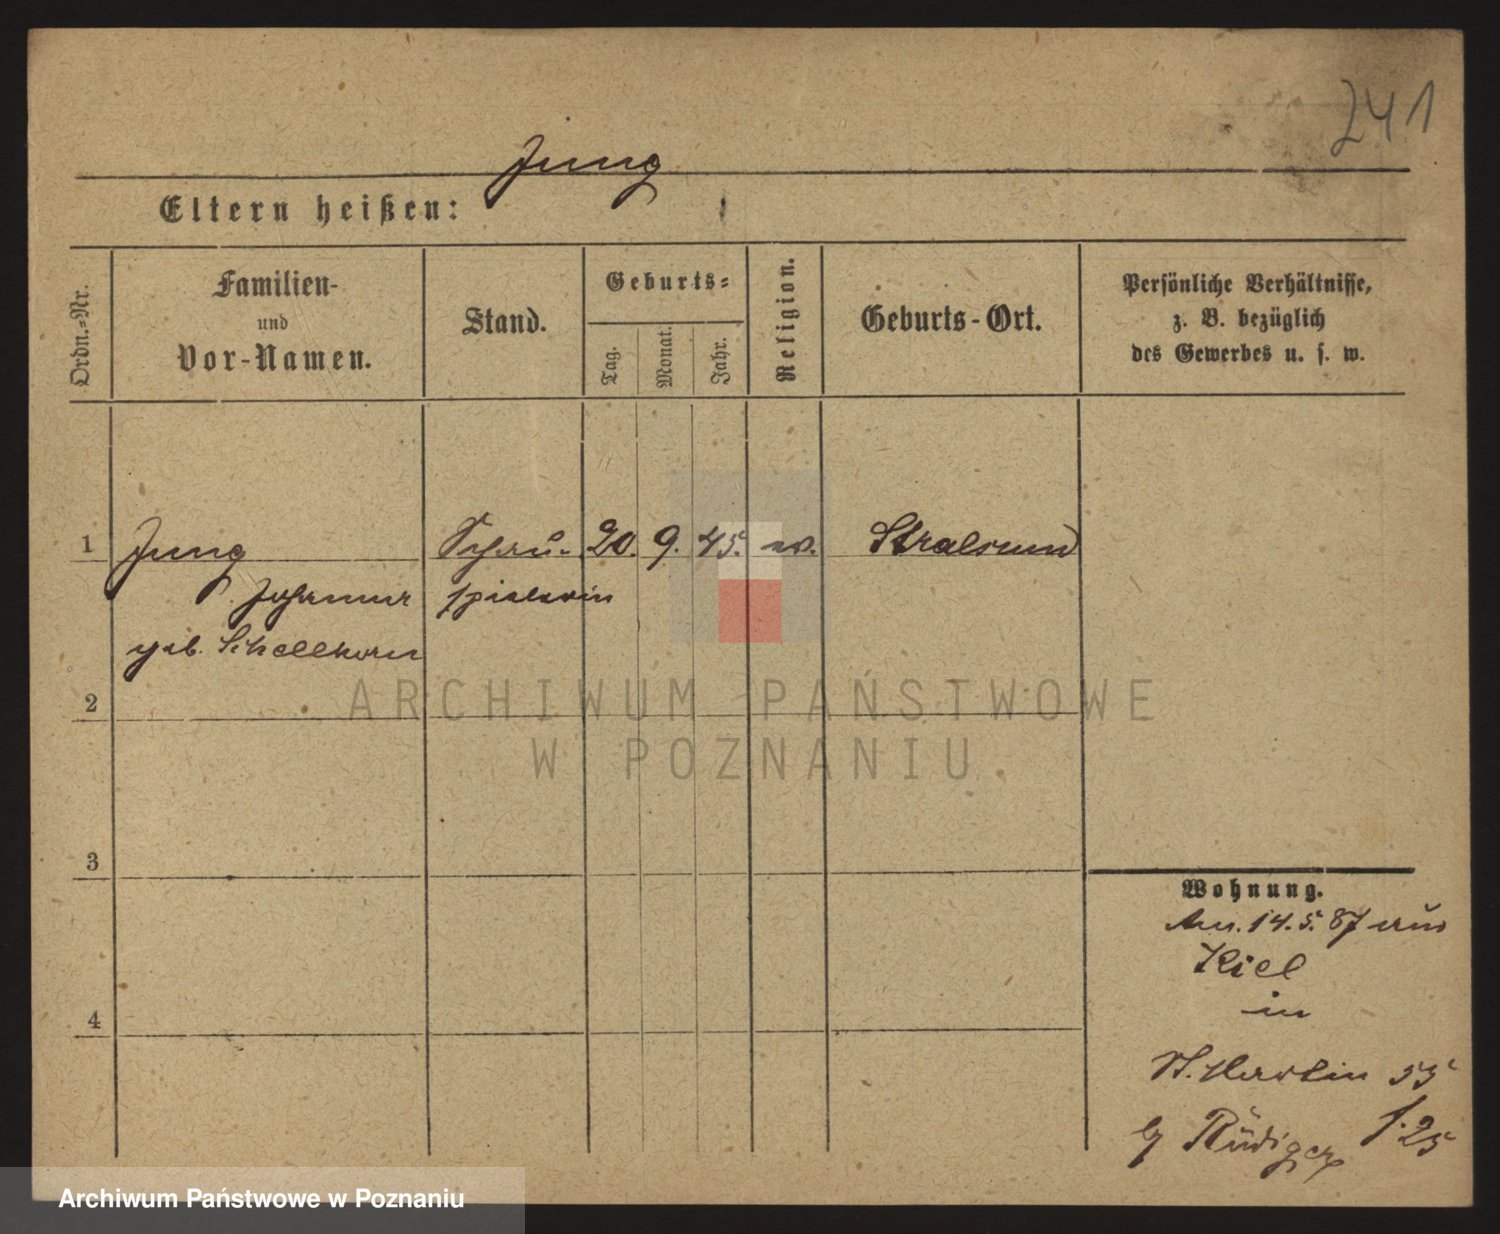 241
Jung
Eltern heißen:
Ordn.-Nr.
Familien-
und
Vor-Namen.
Stand.
Geburts-
Tag.
Monat.
Jahr.
Religion.
Geburts-Ort.
Persönliche Verhältnisse,
z. B. bezüglich
des Gewerbes u. s. w.
1 Jung Schau- 20. 9. 45. ev. Stralsund
Johanna spielerin
geb. Schellhorn
2
3
4
Wohnung.
An. 14.5.87 aus
Kiel
in
St. Martin 55
b/ Rüdiger f. 25
ARCHIWUM PAŃSTWOWE
W POZNANIU
Archiwum Państwowe w Poznaniu